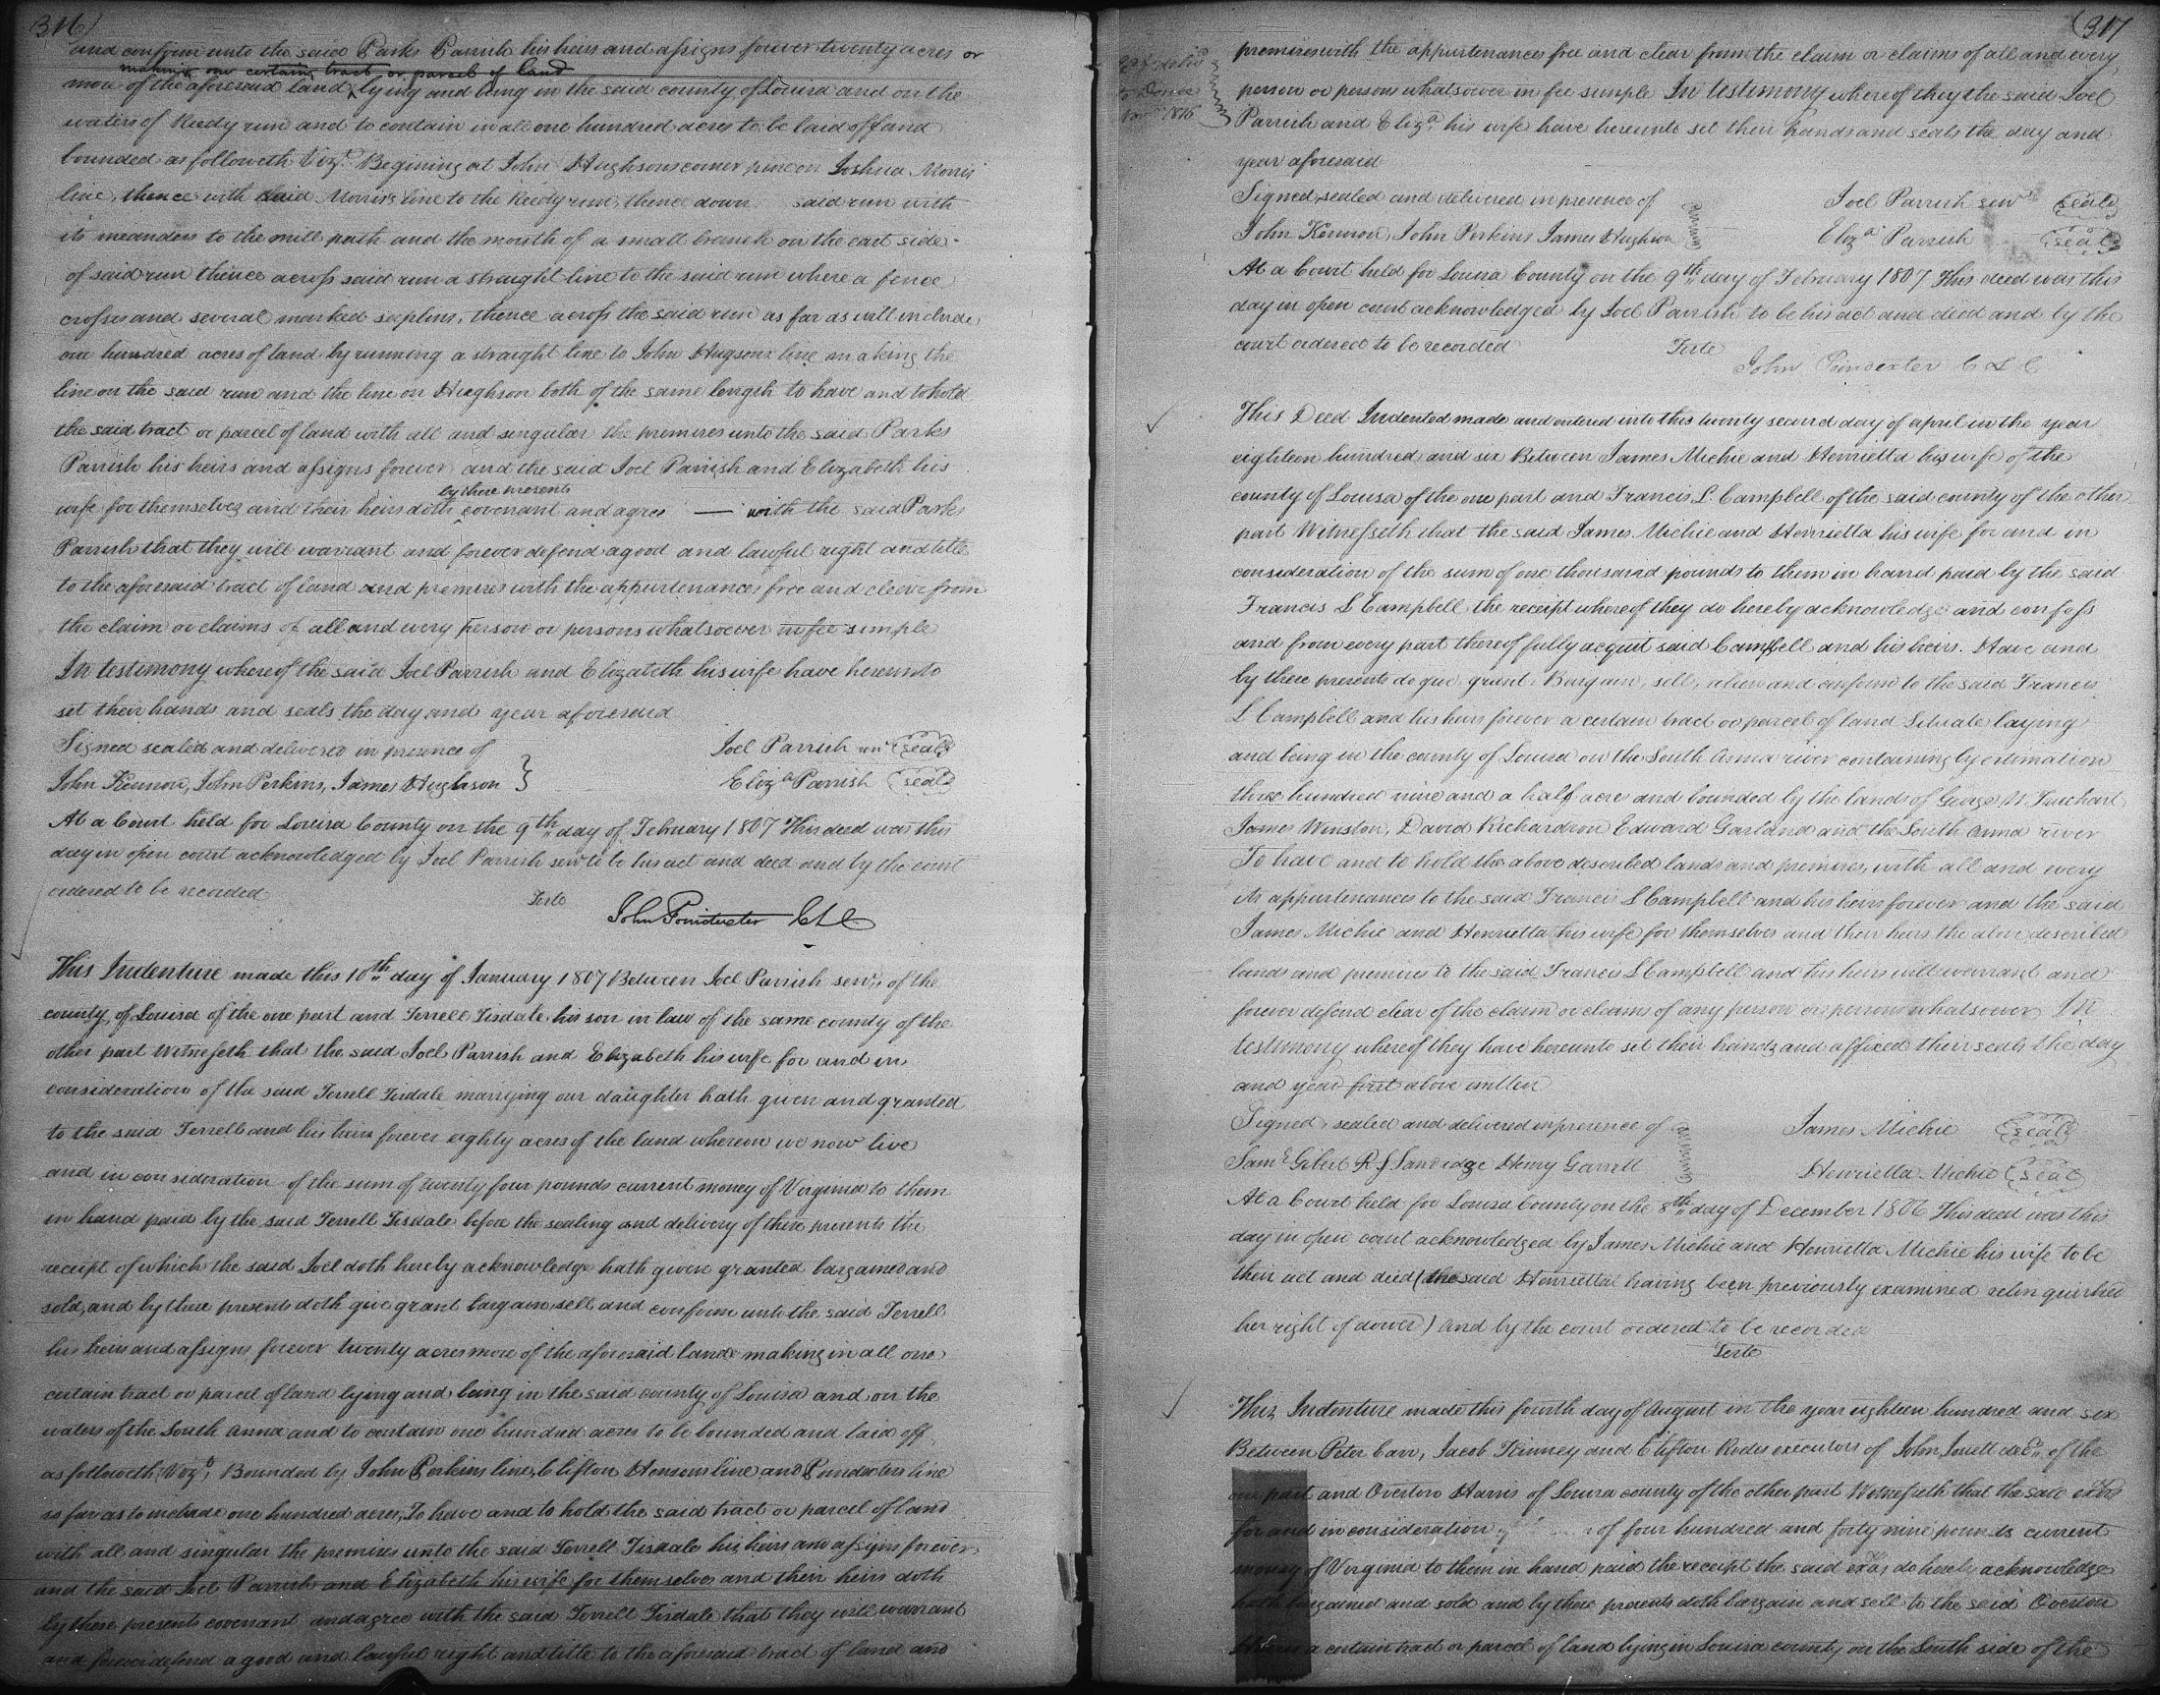 316)
and confirm unto the said Parks Parrish his heirs and assigns forever twenty acres or
making one certain tract or parcel of land
more of the aforesaid land ^ lying and being in the said county of Louisa and on the
waters of Reedy run and to contain in all one hundred acres to be laid off and
bounded as followeth Vizt. Begining at John Hughsons corner pine on Joshua Morris
line, thence with said Morris's line to the Reedy run, thence down said run with
its meanders to the mill path and the mouth of a small branch on the east side
of said run thence across said run a straight line to the said run where a fence
crosses and several marked saplins, thence across the said run as far as will include
one hundred acres of land by running a straight line to John Hugsons line making the
line on the said run and the line on Hughson both of the same length to have and to hold
the said tract or parcel of land with all and singular the premises unto the said Parks
Parrish his heirs and assigns forever and the said Joel Parrish and Elizabeth his
by these presents
wife for themselves and their heirs doth ^ covenant and agree — with the said Parks
Parrish that they will warrant and forever defend a good and lawful right and title
to the aforesaid tract of land and premises with the appurtenances free and clear from
the claim or claims of all and every person or persons whatsoever in fee simple
In testimony whereof the said Joel Parrish and Elizabeth his wife have hereunto
set their hands and seals the day and year aforesaid
Signed sealed and delivered in presence of Joel Parrish (seal)
John Kennon, John Perkins, James Hughson } Eliza Parrish (seal)
At a Court held for Louisa County on the 9th day of February 1807 This deed was this
day in open court acknowledged by Joel Parrish senr to be his act and deed and by the court
ordered to be recorded Teste
John Poindexter CLC
This Indenture made this 10th day of January 1807 Between Joel Parrish senr. of the
county of Louisa of the one part and Terrell Tisdale his son in law of the same county of the
other part Witnesseth that the said Joel Parrish and Elizabeth his wife for and in
consideration of the said Terrell Tisdale marrying our daughter hath given and granted
to the said Terrell and his heirs forever eighty acres of the land whereon we now live
and in consideration of the sum of twenty four pounds current money of Virginia to them
in hand paid by the said Terrell Tisdale before the sealing and delivery of these presents the
receipt of which the said Joel doth hereby acknowledge hath given granted bargained and
sold, and by these presents doth give grant bargain, sell and confirm unto the said Terrell
his heirs and assigns forever twenty acres more of the aforesaid land making in all one
certain tract or parcel of land lying and being in the said county of Louisa and on the
waters of the South Anna and to contain one hundred acres to be bounded and laid off
as followeth, Vizt, Bounded by John Perkins line, Clifton Hensons line and Poindexters line
so far as to include one hundred acres, To have and to hold the said tract or parcel of land
with all and singular the premises unto the said Terrell Tisdale his heirs and assigns forever,
and the said Joel Parrish and Elizabeth his wife for themselves and their heirs doth
by these presents covenant and agree with the said Terrell Tisdale that they will warrant
and forever defend a good and lawful right and title to the aforesaid tract of land and
(317
premises with the appurtenances free and clear from the claim or claims of all and every
person or persons whatsoever in fee simple In testimony whereof they the said Joel
1816 Parrish and Eliza. his wife have hereunto set their hands and seals the day and
year aforesaid
Signed, sealed and delivered in presence of Joel Parrish senr (seal)
John Kennon, John Perkins James Hughson Eliza Parrish (seal)
At a Court held for Louisa County on the 9th day of February 1807 This deed was this
day in open court acknowledged by Joel Parrish to be his act and deed and by the
court ordered to be recorded Teste
John Poindexter C L C
This Deed Indented made and entered into this twenty second day of april in the year
eighteen hundred and six Between James Michie and Henrietta his wife of the
county of Louisa of the one part and Francis L. Campbell of the said county of the other
part Witnesseth that the said James Michie and Henrietta his wife for and in
consideration of the sum of one thousand pounds to them in hand paid by the said
Francis L Campbell the receipt whereof they do hereby acknowledge and confess
and from every part thereof fully acquit said Campbell and his heirs. Have and
by these presents do give, grant, Bargain, sell, release and confirm to the said Francis
L Campbell and his heirs forever a certain tract or parcel of land Situate laying
and being in the county of Louisa on the South Anna river containing by estimation
three hundred nine and a half acre and bounded by the lands of George W Trueheart
James Winston, David Richardson Edward Garland and the South Anna river
To have and to hold the above described lands and premises, with all and every
its appurtenances to the said Francis L Campbell and his heirs forever and the said
James Michie and Henrietta his wife for themselves and their heirs the above described
lands and premises to the said Francis L Campbell and his heirs will warrant and
forever defend clear of the claim or claims of any person or persons whatsoever In
testimony whereof they have hereunto set their hands and affixed their seals the day
and year first above written
Signed, sealed and delivered in presence of James Michie (seal)
Saml Gilbert R S Sandridge Henry Garrett Henrietta Michie (seal)
At a Court held for Louisa County on the 8th day of December 1806 This deed was this
day in open court acknowledged by James Michie and Henrietta Michie his wife to be
their act and deed (the said Henrietta having been previously examined relinquished
her right of dower) and by the court ordered to be recorded
Teste
This Indenture made this fourth day of August in the year eighteen hundred and six
Between Peter Carr, Jacob Kinney and Clifton Rodes executors of John Jouett decd. of the
one part and Overton Harris of Louisa county of the other part Witnesseth that the said exors
for and in consideration of four hundred and forty nine pounds current
money of Virginia to them in hand paid the receipt the said exors do hereby acknowledge
hath bargained and sold and by these presents doth bargain and sell to the said Overton
Harris a certain tract or parcel of land lying in Louisa county on the South side of the